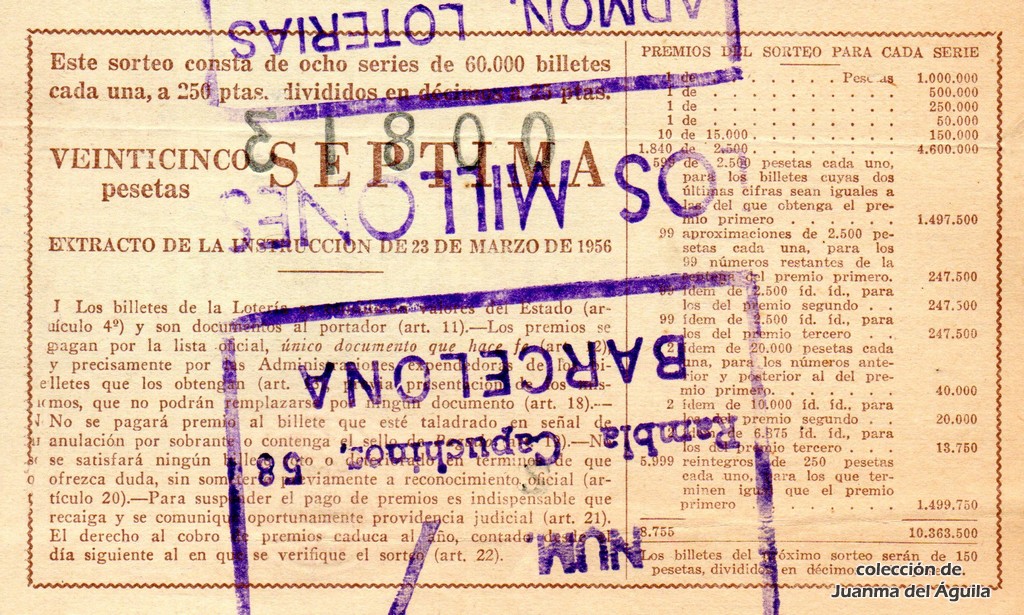 Este sorteo consta de ocho series de 60.000 billetes
cada una, a 250 ptas. divididos en décimos a 25 ptas.
VEINTICINCO
pesetas
SEPTIMA
EXTRACTO DE LA INSTRUCCION DE 23 DE MARZO DE 1956
I Los billetes de la Lotería valores del Estado (ar-
tículo 4º) y son documentos al portador (art. 11).—Los premios se
pagan por la lista oficial, único documento que hace fe (art. 12)
y precisamente por las Administraciones expendedoras de los bi-
lletes que los obtengan (art. previa presentación de los mis-
mos, que no podrán remplazarse por ningún documento (art. 18).—
No se pagará premio al billete que esté taladrado en señal de
anulación por sobrante o contenga el sello de .—No
se satisfará ningún billete roto o deteriorado en términos de que
ofrezca duda, sin someterlo previamente a reconocimiento oficial (ar-
tículo 20).—Para suspender el pago de premios es indispensable que
recaiga y se comunique oportunamente providencia judicial (art. 21).
El derecho al cobro de premios caduca al año, contado desde el
día siguiente al en que se verifique el sorteo (art. 22).
PREMIOS DEL SORTEO PARA CADA SERIE
1 de . . . . . . . . Pesetas 1.000.000
1 de . . . . . . . . 500.000
1 de . . . . . . . . 250.000
1 de . . . . . . . . 50.000
10 de 15.000 . . . . . . . 150.000
1.840 de 2.500 . . . . . . . 4.600.000
599 de 2.500 pesetas cada uno,
para los billetes cuyas dos
últimas cifras sean iguales a
las del que obtenga el pre-
mio primero . . . . . . 1.497.500
99 aproximaciones de 2.500 pe-
setas cada una, para los
99 números restantes de la
centena del premio primero. 247.500
99 ídem de 2.500 íd. íd., para
los del premio segundo . . . 247.500
99 ídem de 2.500 íd. íd., para
los del premio tercero . . . 247.500
2 ídem de 20.000 pesetas cada
una, para los números ante-
rior y posterior al del pre-
mio primero. . . . . . . 40.000
2 ídem de 10.000 íd. íd., para
los del premio segundo . . . 20.000
2 ídem de 6.875 íd. íd., para
los del premio tercero . . . 13.750
5.999 reintegros de 250 pesetas
cada uno, para los que ter-
minen igual que el premio
primero . . . . . . . . 1.499.750
8.755 10.363.500
Los billetes del próximo sorteo serán de 150
pesetas, divididos en décimos
00813
NUM.
Rambla Capuchinos, 58
BARCELONA
LOS MILLONES
ADMON. LOTERIAS
colección de
Juanma del Águila